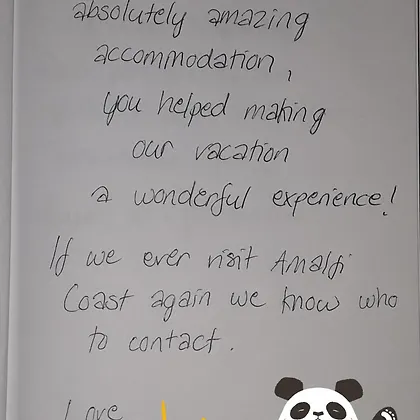 absolutely amazing
accommodation,
you helped making
our vacation
a wonderful experience!
If we ever visit Amalfi
Coast again we know who
to contact.
Love